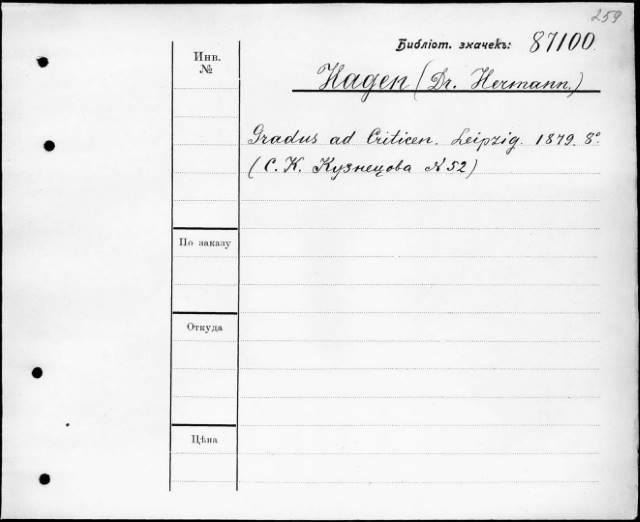 259
Библіот. значекъ: 87100
Инв. №
Hagen (Dr. Hermann.)
Gradus ad Criticen. Leipzig. 1879. 8°.
(С. К. Кузнецова № 52)
По заказу
Откуда
Цѣна